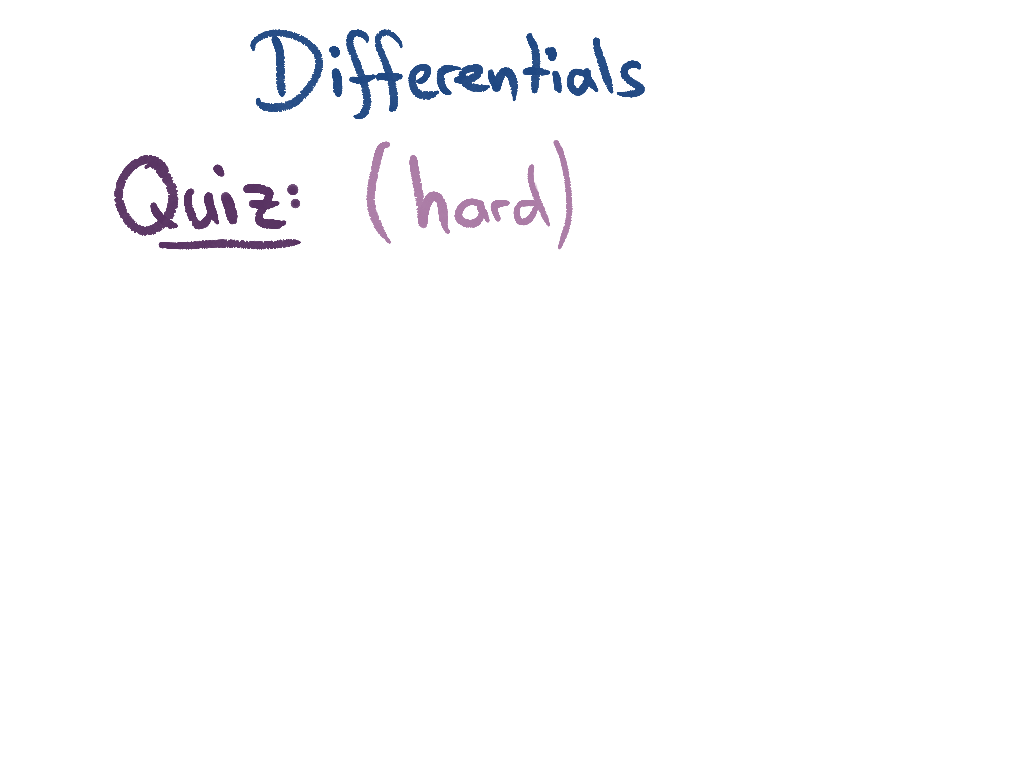 Differentials
Quiz: (hard)